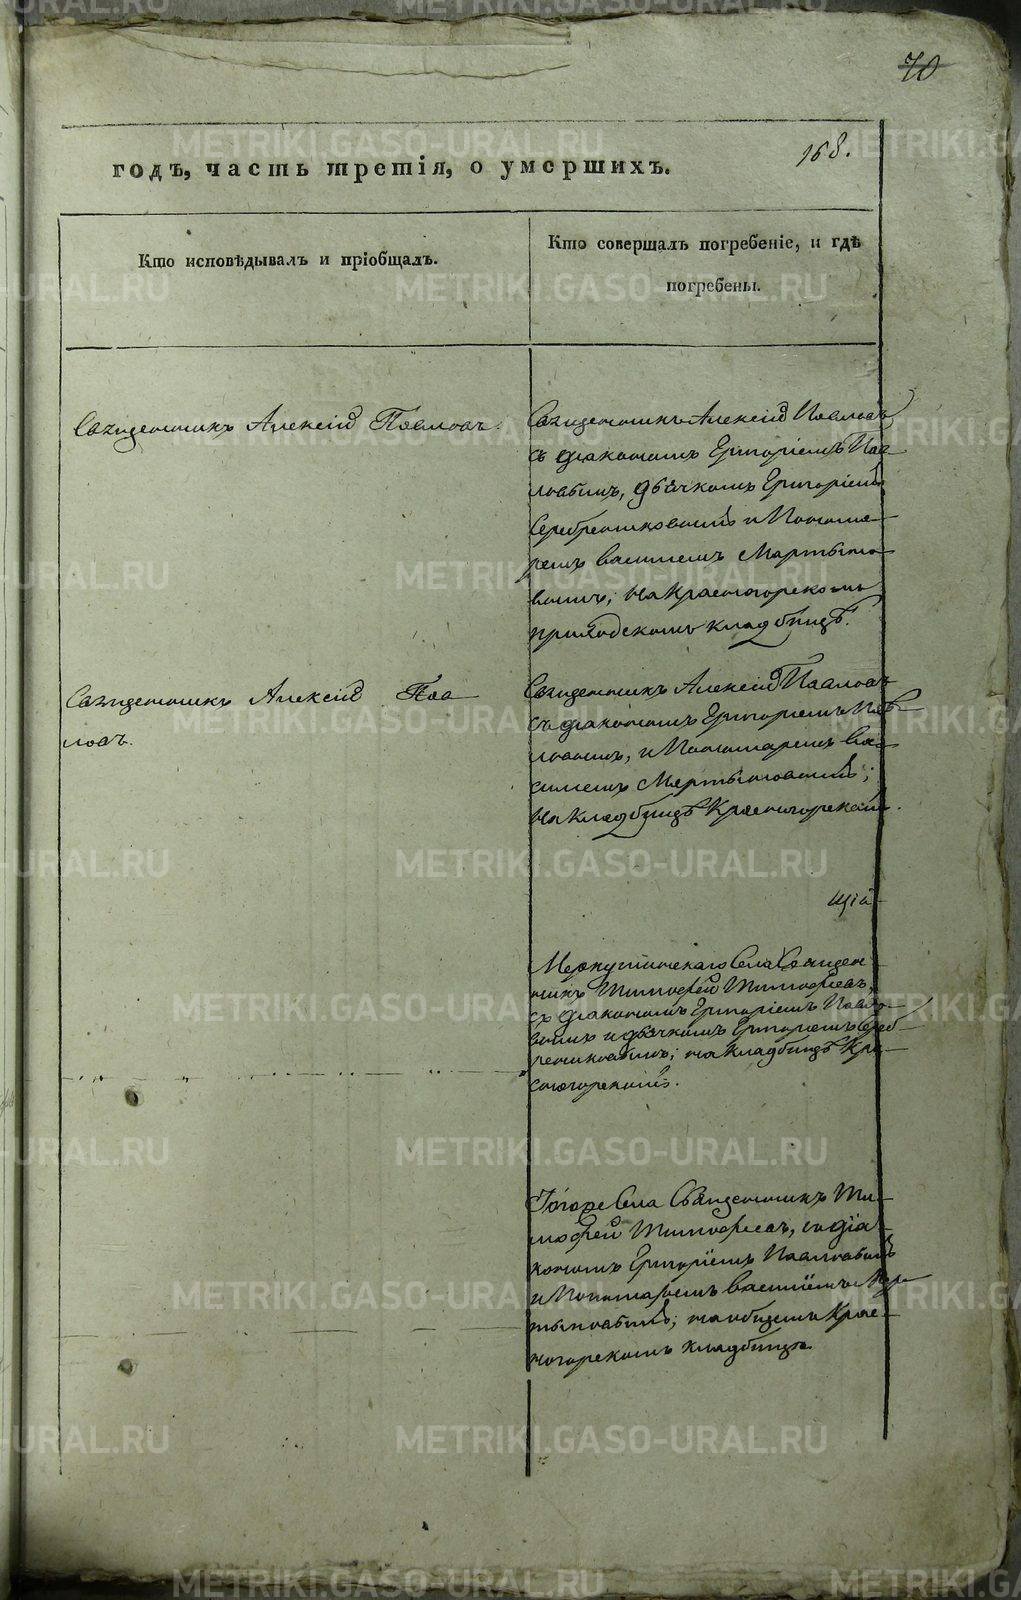 70
168.
годъ, часть третія, о умершихъ.
Кто исповѣдывалъ и пріобщалъ.
Кто совершалъ погребеніе, и гдѣ
погребены.
Священникъ Алексій Павловъ.
Священникъ Алексій Павловъ
съ діакономъ Григоріемъ Пав
ловымъ, дьячкомъ Григоріемъ
Серебренниковымъ и Понома
ремъ Василіемъ Мартыно
вымъ; на Красногорскомъ
приходскомъ кладбищѣ.
Священникъ Алексій Пав
ловъ.
Священникъ Алексій Павловъ
съ діакономъ Григоріемъ Пав
ловымъ, и Пономаремъ Ва
силіемъ Мартыновымъ;
на кладбищѣ Красногорскомъ.
щій
Меркушинскаго Села Священ
никъ Тимофей Тимофеевъ,
съ діакономъ Григоріемъ Павло
вымъ и дьячкомъ Григоріемъ Сереб
ренниковымъ; на кладбищѣ Кра
сногорскомъ.
Тогоже Села Священникъ Ти
мофей Тимофеевъ, съ діа
кономъ Григоріемъ Павловымъ
и Пономаремъ Василіемъ Мар
тыновымъ; на общемъ Крас
ногорскомъ кладбищѣ.
METRIKI.GASO-URAL.RU